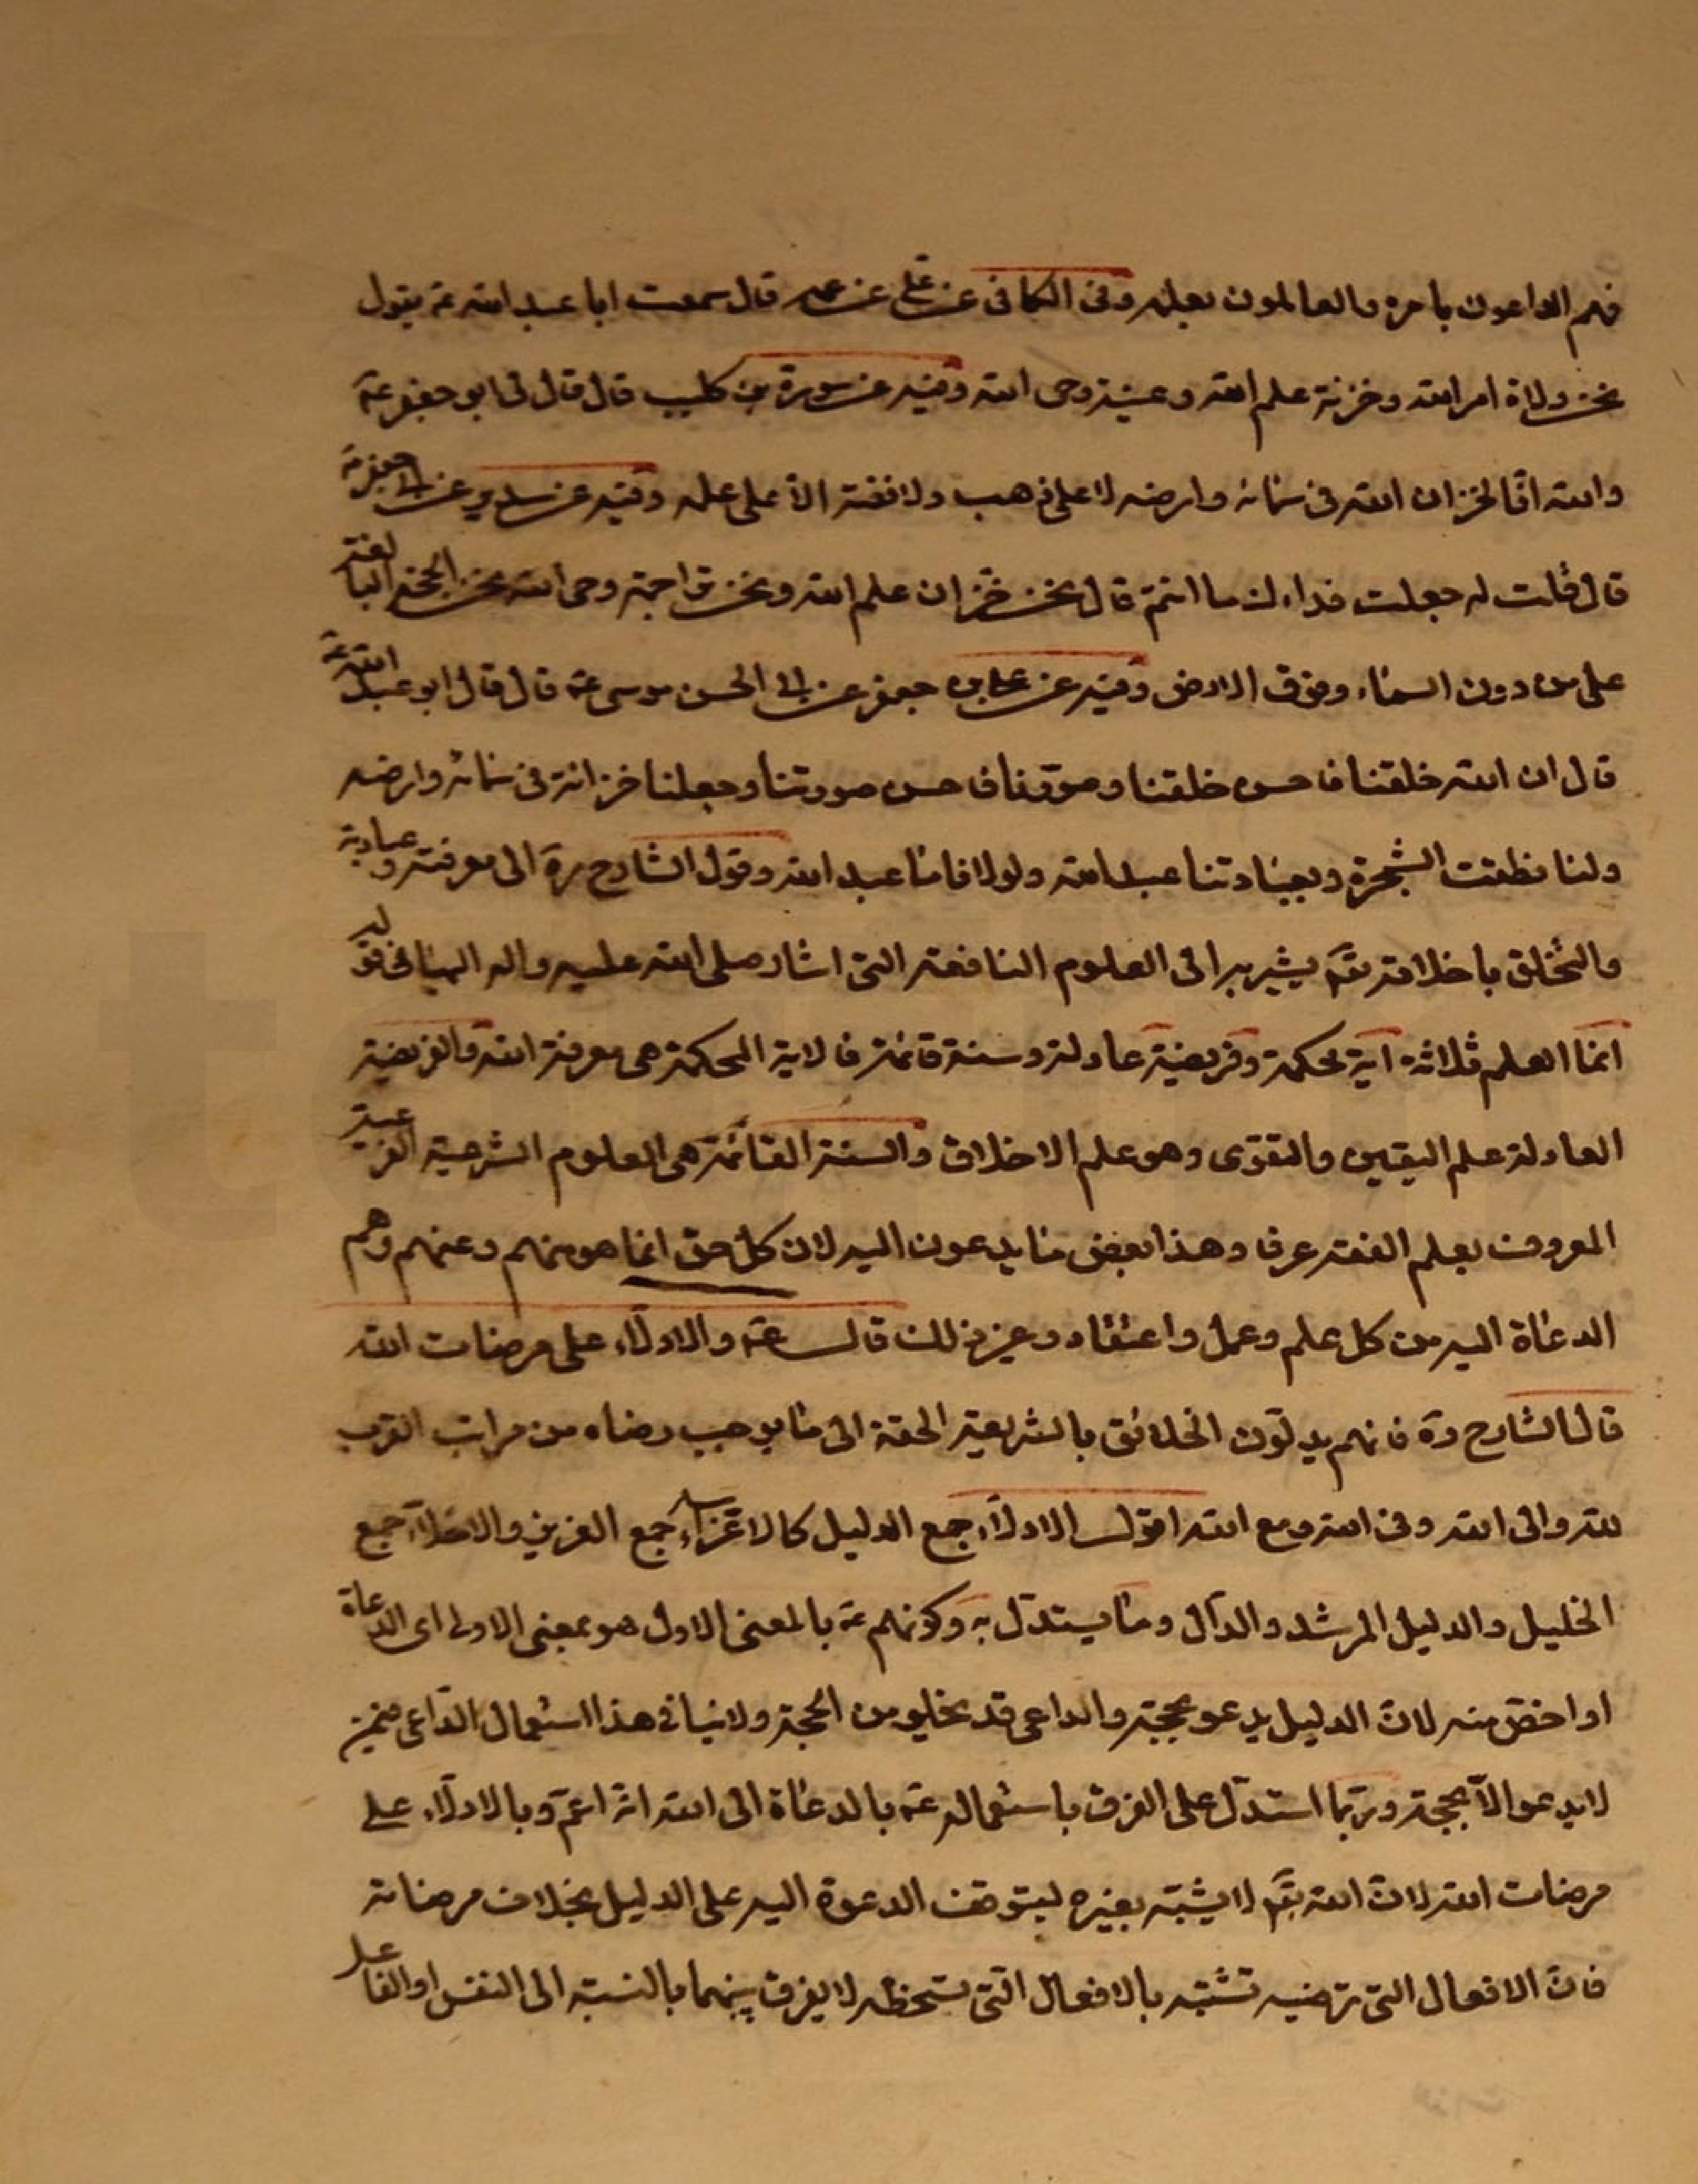 فهم الداعون بامره والعالمون بعلمه وفى الكافى عن على عن عمه قال سمعت ابا عبد الله عه يقول
نحن ولاة امر الله وخزنة علم الله وعيبة وحى الله وفيه عن سورة بن كليب قال قال لى ابو جعفر عه
والله انا لخزان الله فى سمائه وارضه لا على ذهب ولا فضة الا على علمه وفيه عن سدير عن ابى جعفر عه
قال قلت له جعلت فداءك ما انتم قال نحن خزان علم الله ونحن تراجمة وحى الله نحن الحجة البالغة
على من دون السماء وفوق الارض وفيه عن على بن جعفر عن ابى الحسن موسى عه قال قال ابو عبد الله عه
قال ان الله خلقنا فاحسن خلقنا وصورنا فاحسن صورتنا وجعلنا خزانه فى سمائه وارضه
ولنا نطقت الشجرة وبعبادتنا عبد الله ولولانا ما عبد الله وقول الشارح ره الى معرفته وعبادته
والتخلق باخلاقه تعم يشير به الى العلوم النافعة التى اشار صلى الله عليه واله اليها فى قوله
انما العلم ثلاثة اية محكمة وفريضة عادلة وسنة قائمة فالاية المحكمة هى معرفة الله والفريضة
العادلة علم اليقين والتقوى وهو علم الاخلاق والسنة القائمة هى العلوم الشرعية الفرعية
المعروف بعلم الفقه عرفا وهذا بعض ما يدعون اليه لان كل حق انما هو منهم وعنهم وهم
الدعاة اليه من كل علم وعمل واعتقاد وغير ذلك قال عه والادلاء على مرضات الله
قال الشارح ره فانهم يدلون الخلائق بالشريعة الحقة الى ما يوجب رضاه من مراتب القرب
لله والى الله وفى الله ومع الله اقول الادلاء جمع الدليل كالاعزاء جمع العزيز والاخلاء جمع
الخليل والدليل المرشد والدال وما يستدل به وكونهم عه بالمعنى الاول هو بمعنى الاولى اى الدعاة
او اخص منه لان الدليل يدعو بحجة والداعى قد يخلو من الحجة ولا ينافى هذا استعمال الداعى فيمن
لا يدعو الا بحجة وربما استدل على الفرق باستعماله عه بالدعاة الى الله انه اعم وبالادلاء على
مرضات الله لان الله تعم لا يشتبه بغيره ليتوقف الدعوة اليه على الدليل بخلاف مرضاته
فان الافعال التى ترضيه تشتبه بالافعال التى تسخطه لا يفرق بينهما بالنسبة الى النفس او الفاعل